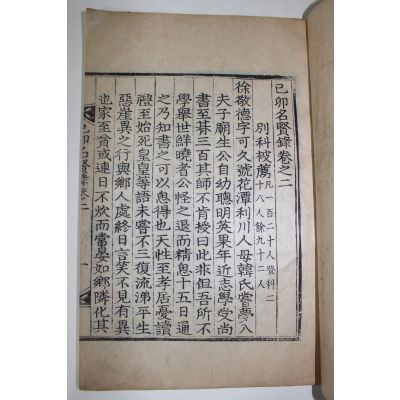 己卯名賢錄卷之二
別科被薦凡一百二十人登科二十八人餘九十二人
徐敬德字可久號花潭利川人母韓氏嘗夢入
夫子廟生公自幼聰明英果年近志學受尙
書至朞三百其師不肯授曰此非但吾所不
學擧世鮮曉者公怪之退而精思十五日通
之乃知書之可以思得也天性至孝居憂讀
禮至始死皇皇等語未嘗不三復流涕平生
惡崖異之行與鄕人處終日言笑不見有異
也家至貧或連日不炊而常晏如鄕隣化其
己卯名賢錄卷二